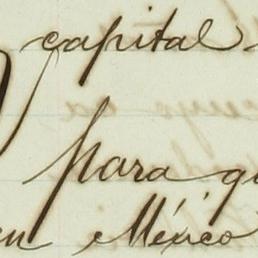 capital
para qu
en México